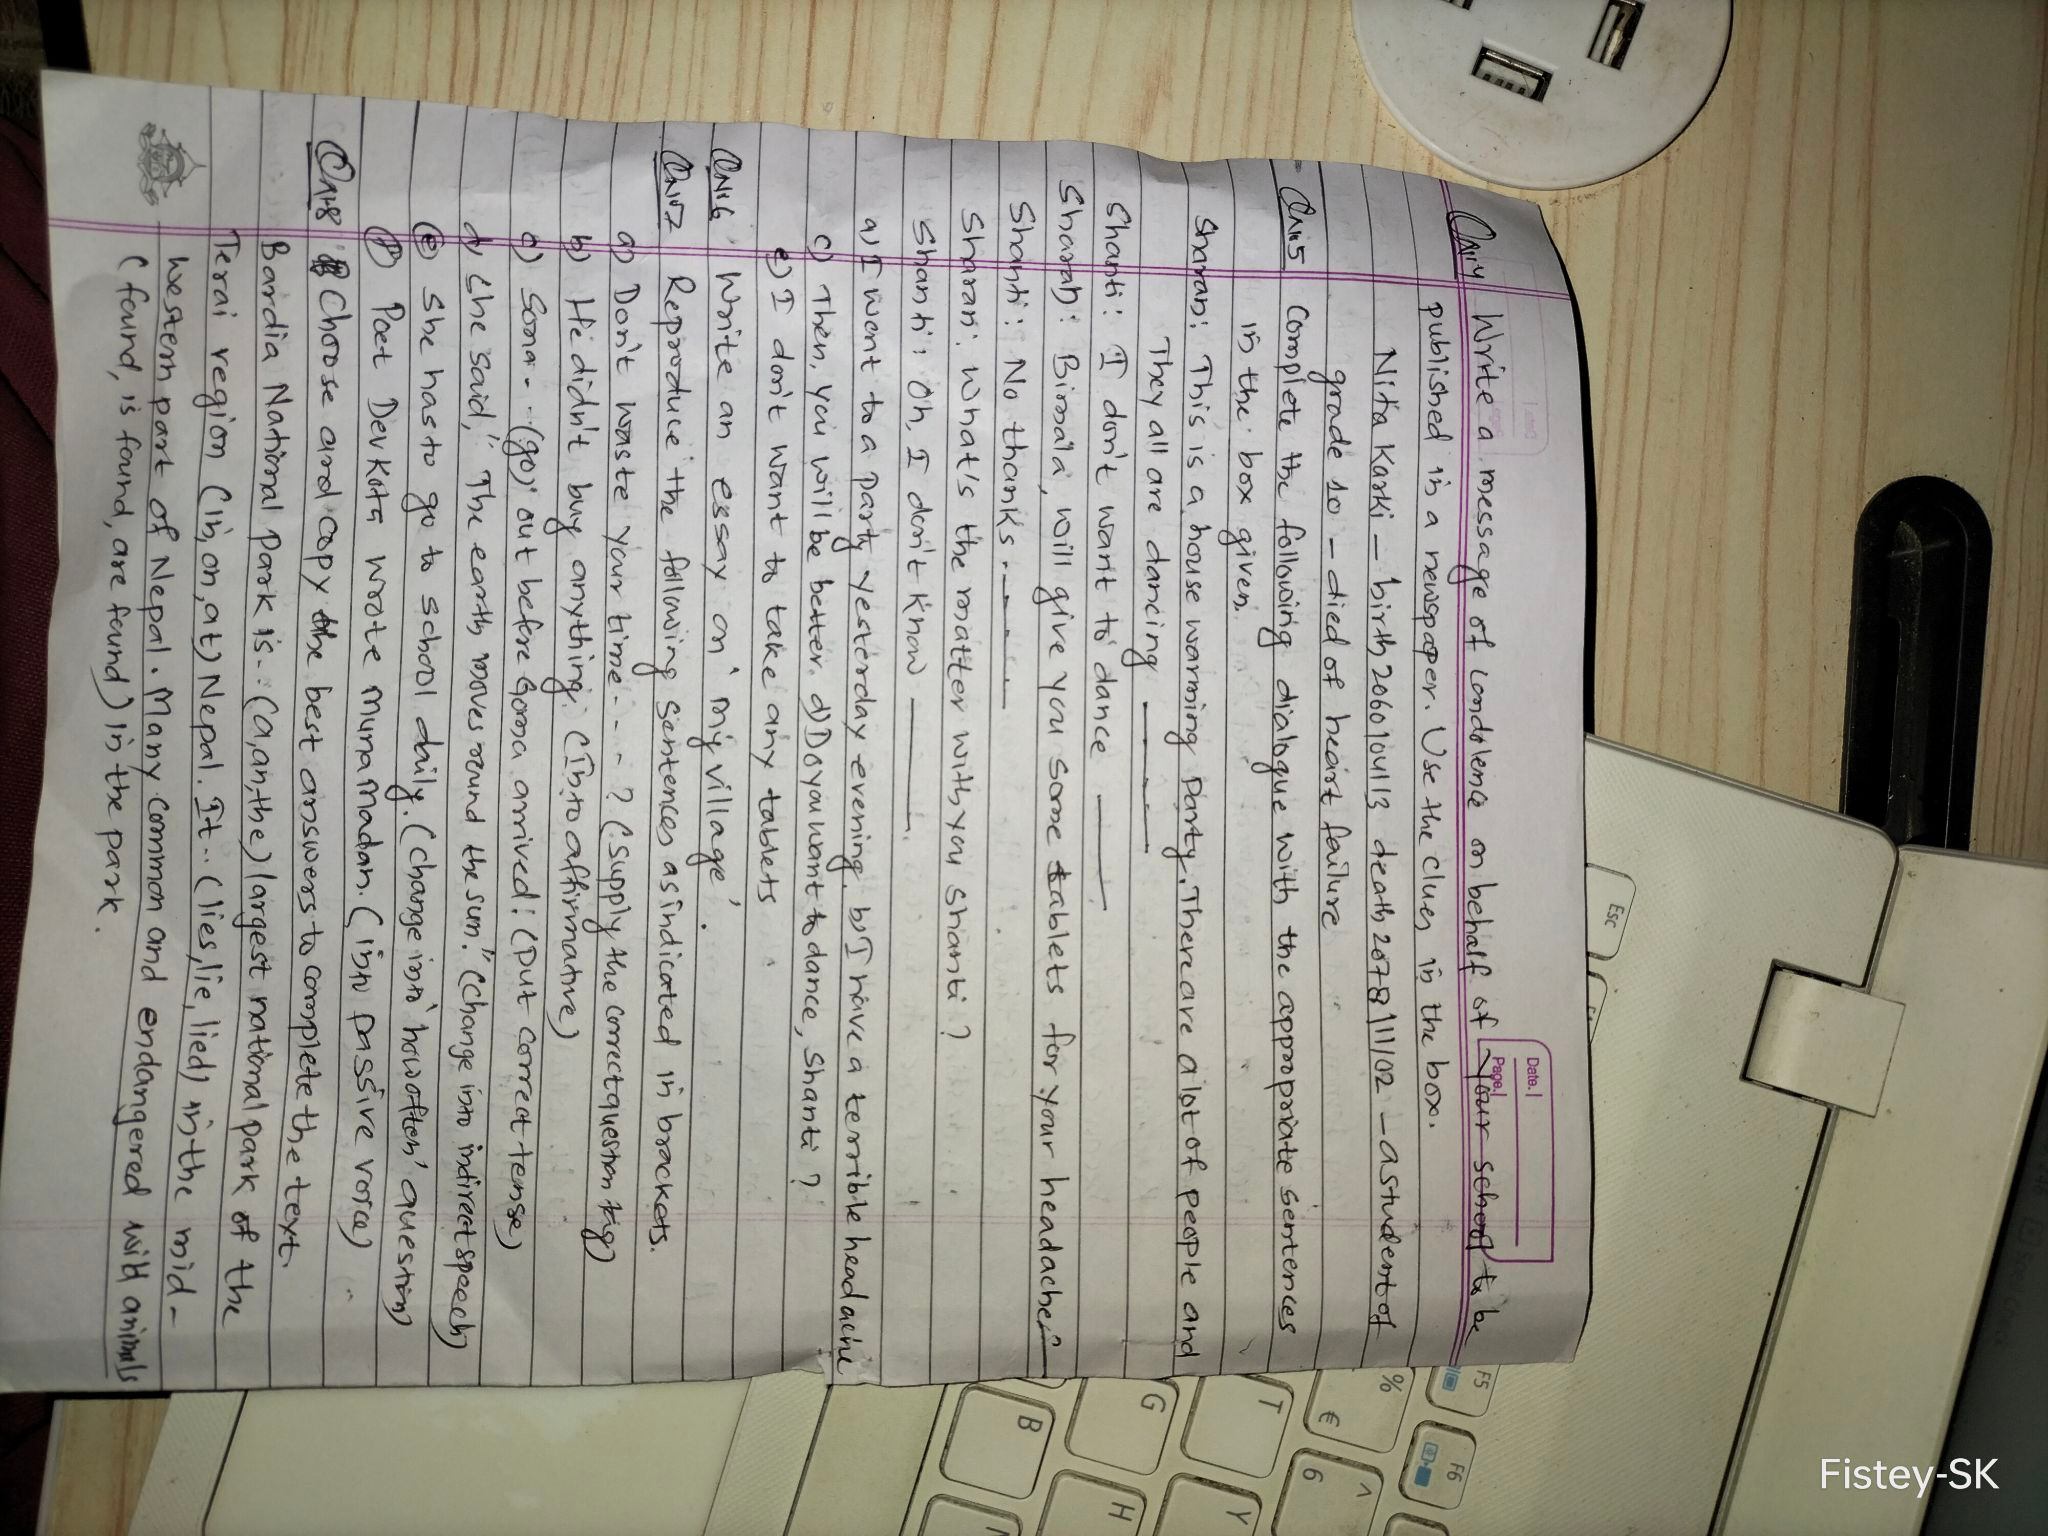 QN:4 Write a message of condolence on behalf of your school to be
published in a newspaper. Use the clues in the box.
Nita Karki – birth 2060/04/13 death 2078/11/02 – a student of
grade 10 – died of heart failure
QN:5 Complete the following dialogue with the appropriate sentences
in the box given.
Sharan: This is a house warming party. There are a lot of people and
They all are dancing ____
Shanti: I don't want to dance ____
Sharan: Bimala, will give you some tablets for your headache.
Shanti: No thanks ____
Sharan: What's the matter with you shanti?
Shanti: Oh, I don't know ____.
a) I went to a party yesterday evening. b) I have a terrible headache
c) Then, you will be better. d) Do you want to dance, shanti?
e) I don't want to take any tablets
QN:6 Write an essay on 'my village'.
QN:7 Reproduce the following sentences as indicated in brackets.
a) Don't waste your time - - - ? (supply the correct question tag)
b) He didn't buy anything. (Into affirmative)
c) Soma - - (go) out before Goma arrived: (put correct tense)
d) she said, "The earth moves round the sun." (change into indirect speech)
e) she has to go to school daily. (change into 'how often' question)
f) Poet Devkota wrote muna madan. (into passive voice)
QN:8 Choose and copy the best answers to complete the text.
Bardia National park is .. (a, an, the) largest national park of the
Terai region (in, on, at) Nepal. It .. (lies, lie, lied) in the mid-
western part of Nepal. Many common and endangered wild animals
(found, is found, are found) in the park.
Date:
Page:
Esc
F5
F6
%
€
^
6
T
Y
G
H
B
Fistey-SK